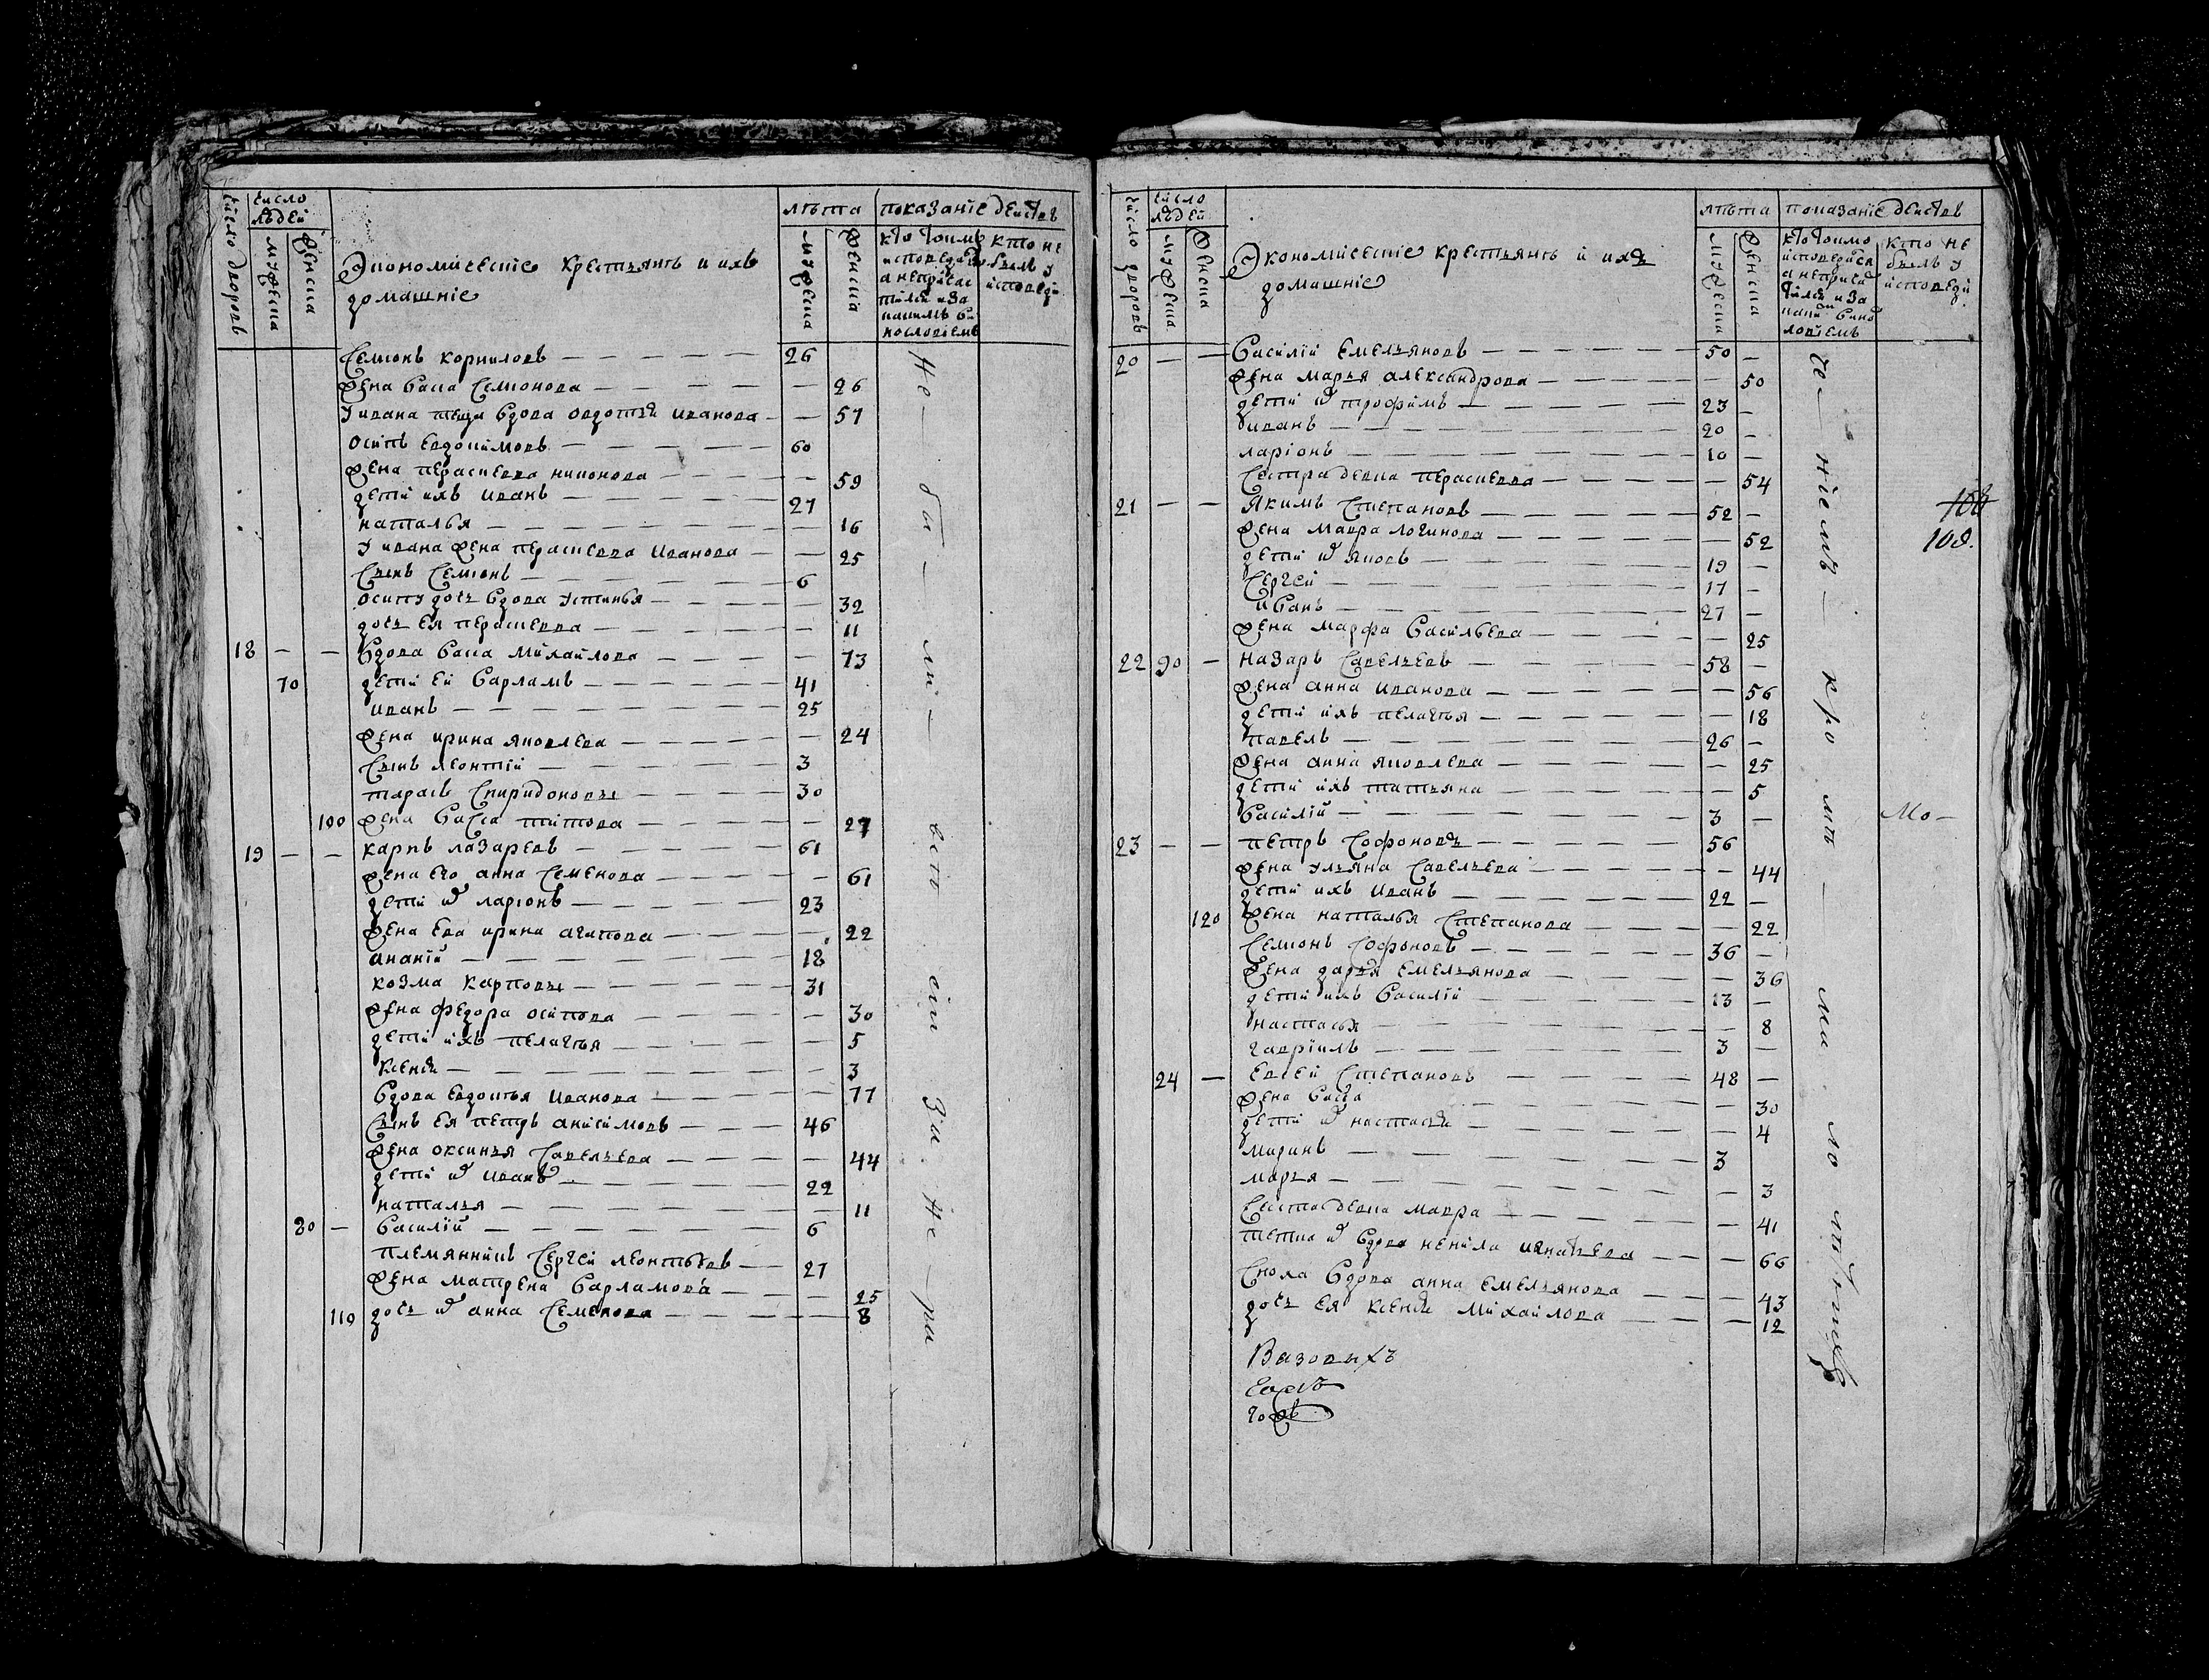 число дворовъ
число людей
мужеска
женска
Экономическіе крестьянъ и ихъ
домашніе
лѣта
мужеска
женска
показаніе действ
кто токмо
исповедался
а непричас
тился и за
каким ви
нословіемъ
кто не
былъ у
исповеди
Семионъ корниловъ — 26
жена васса Семионова — 26
у ивана теща вдова овдотья иванова — 57
осипъ евдокимовъ — 60
жена пераскевва никонова — 59
дети ихъ иванъ — 27
наталья — 16
у ивана жена пераскевва иванова — 25
Сынъ Семионъ — 6
осипу дочь вдова устинья — 32
дочь ея пераскевва — 11
18 — — вдова васса михайлова — 73
70 дети ей варламъ — 41
иванъ — 25
жена ирина яковлева — 24
Сынъ леонтій — 3
тарасъ Спиридоновъ — 30
100 жена васса титова — 27
19 — — карпъ лазаревъ — 61
жена его анна Семенова — 61
дети ѿ ларіонъ — 23
жена ева ирина агапова — 22
ананій — 18
козма карповъ — 31
жена федора осипова — 30
дети ихъ пелагья — 5
ксенья — 3
вдова евдотья иванова — 77
Сынъ ея петръ анисимовъ — 46
жена оксинья Савельева — 44
дети ѿ иванъ — 22
наталья — 11
80 — василій — 6
племянникъ Сергей леонтьевъ — 27
жена матрена варламова — 25
110 дочь ѿ анна Семенова — 8
Не — бы — ли —
За. Не — ра
число дворовъ
число людей
мужеска
женска
Экономическіе крестьянъ и ихъ
домашніе
лѣта
мужеска
женска
показаніе действ
кто токмо
исповедался
а непричас
тился и за
каким вино
ловіемъ
кто не
былъ у
исповеди
20 — — василій емельяновъ — 50 —
жена марья александрова — 50
дети ѿ трофимъ — 23 —
иванъ — 20 —
ларіонъ — 10 —
Сестра девка пераскевва — 54
21 — — якимъ Степановъ — 52 —
жена мавра логинова — 52
дети ѿ яковъ — 19 —
Сергей — 17 —
иванъ — 27 —
жена марфа васильева — 25
22 90 — назаръ Савельевъ — 58 —
жена анна иванова — 56
дети ихъ пелагья — 18
павелъ — 26 —
жена анна яковлева — 25
дети ихъ татьяна — 5
василій — 3 —
23 — — петръ Софоновъ — 56
жена ульяна Савельева — 44
дети ихъ иванъ — 22 —
120 жена наталья Степанова — 22
Семионъ Софоновъ — 36 —
жена дарья емельянова — 36
дети ихъ василій — 13 —
настасья — 8
гавріилъ — 3 —
24 — евсей Степановъ — 48 —
жена васса — 30
дети ѿ настасья — 4
миринъ — 3
марья — 3
Сестра девка мавра — 41
тетка ѿ вдова ненила игнатьева — 66
Сноха вдова анна емельянова — 43
дочь ея ксенья михайлова — 12
че — ніемъ — кро мѣ — ма. ло лѣтнихъ
108
108.
Мо —